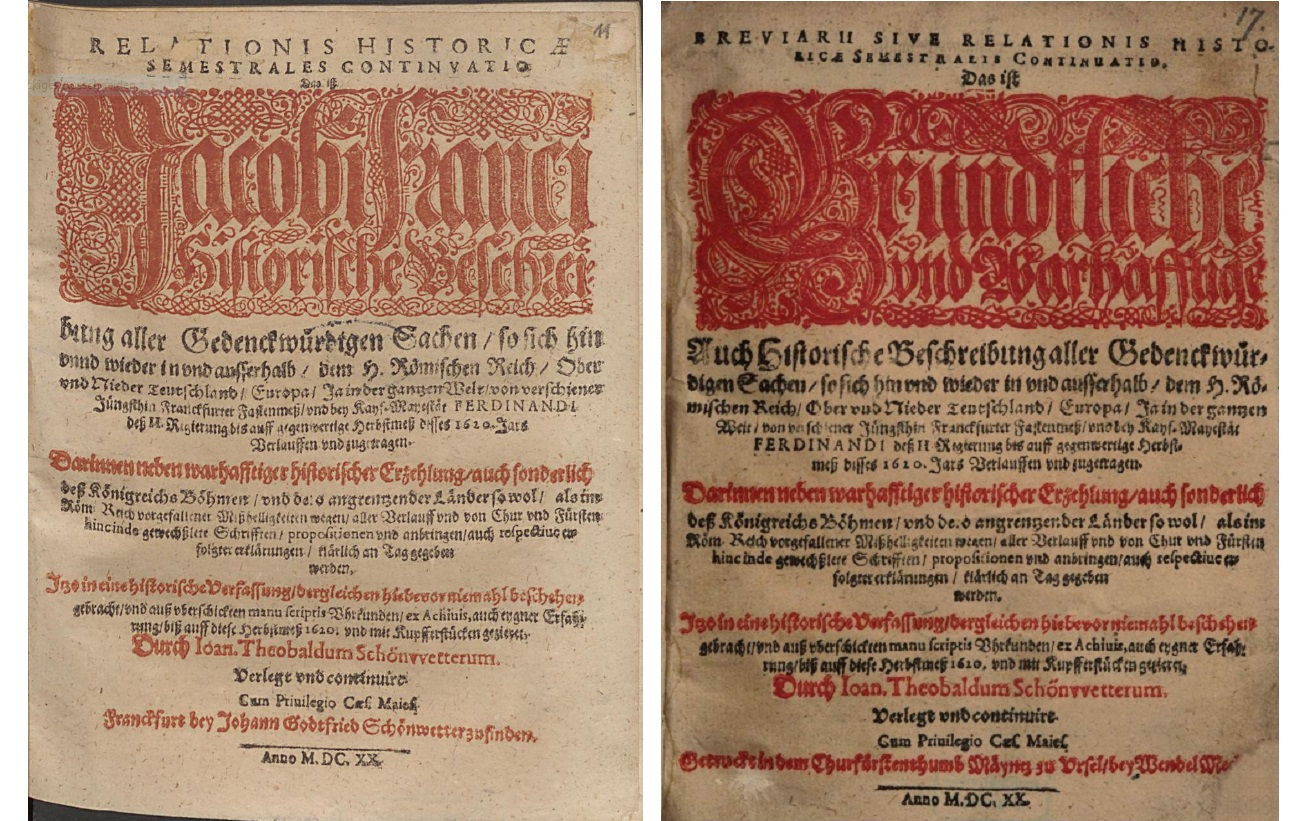 11
RELATIONIS HISTORICÆ
SEMESTRALES CONTINVATIO
Das ist
Jacobi Franci
Historische Beschrei-
bung aller Gedenckwürdigen Sachen / so sich hin
vnnd wieder in vnd ausserhalb / dem H. Römischen Reich / Ober
vnd Nieder Teutschland / Europa / Ja in der gantzen Welt / von verschiener
Jüngsthin Franckfurter Fastenmeß / vnd bey Kays. Mayestät FERDINANDI
deß II. Regierung bis auff gegenwertige Herbstmeß disses 1620. Jars
Verlauffen vnd zugetragen.
Darinnen neben warhafftiger historischer Erzehlung / auch sonderlich
deß Königreichs Böhmen / vnd dero angrentzender Länder so wol / als im
Röm. Reich vorgefallener Mißhelligkeiten wegen / aller Verlauff vnd von Chur vnd Fürsten
hinc inde gewechßlete Schrifften / propositionen vnd anbringen / auch respectiue er
folgter erklärungen / klärlich an Tag gegeben
werden.
Jtzo in eine historische Verfassung / dergleichen hiebevor niemahl beschehen
gebracht / vnd auß vberschickten manu scriptis Vhrkunden / ex Achiuis, auch eygner Erfah-
rung / biß auff diese Herbstmeß 1620. vnd mit Kupfferstücken gezieret,
Durch Ioan. Theobaldum Schönvvetterum.
Verlegt vnd continuirt.
Cum Priuilegio Cæs. Maiest.
Franckfurt bey Johann Godtfried Schönwetter zufinden.
Anno M. DC. XX.
17.
BREVIARII SIVE RELATIONIS HISTO-
RICÆ SEMESTRALIS CONTINUATIO.
Das ist
Gründtliche
vnd Warhafftige
Auch Historische Beschreibung aller Gedenckwür-
digen Sachen / so sich hin vnd wieder in vnd ausserhalb / dem H. Rö-
mischen Reich / Ober vnd Nieder Teutschland / Europa / Ja in der gantzen
Welt / von verschiener Jüngsthin Franckfurter Fastenmeß / vnd bey Kays. Mayestät
FERDINANDI deß II Regierung bis auff gegenwertige Herbst-
meß disses 1620. Jars Verlauffen vnd zugetragen.
Darinnen neben warhafftiger historischer Erzehlung / auch sonderlich
deß Königreichs Böhmen / vnd dero angrentzender Länder so wol / als im
Röm. Reich vorgefallener Mißhelligkeiten wegen / aller Verlauff vnd von Chur vnd Fürsten
hinc inde gewechßlete Schrifften / propositionen vnd anbringen / auch respectiue er
folgter erklärungen / klärlich an Tag gegeben
werden.
Jtzo in eine historische Verfassung / dergleichen hiebevor niemahl beschehen
gebracht / vnd auß vberschickten manu scriptis Vhrkunden / ex Achiuis, auch eygner Erfah-
rung / biß auff diese Herbstmeß 1620. vnd mit Kupfferstücken gezieret,
Durch Ioan. Theobaldum Schönvvetterum.
Verlegt vnd continuirt.
Cum Priuilegio Cæs. Maiest.
Getruckt in dem Churfürstenthumb Mäyntz zu Vrsel / bey Wendel
Anno M. DC. XX.